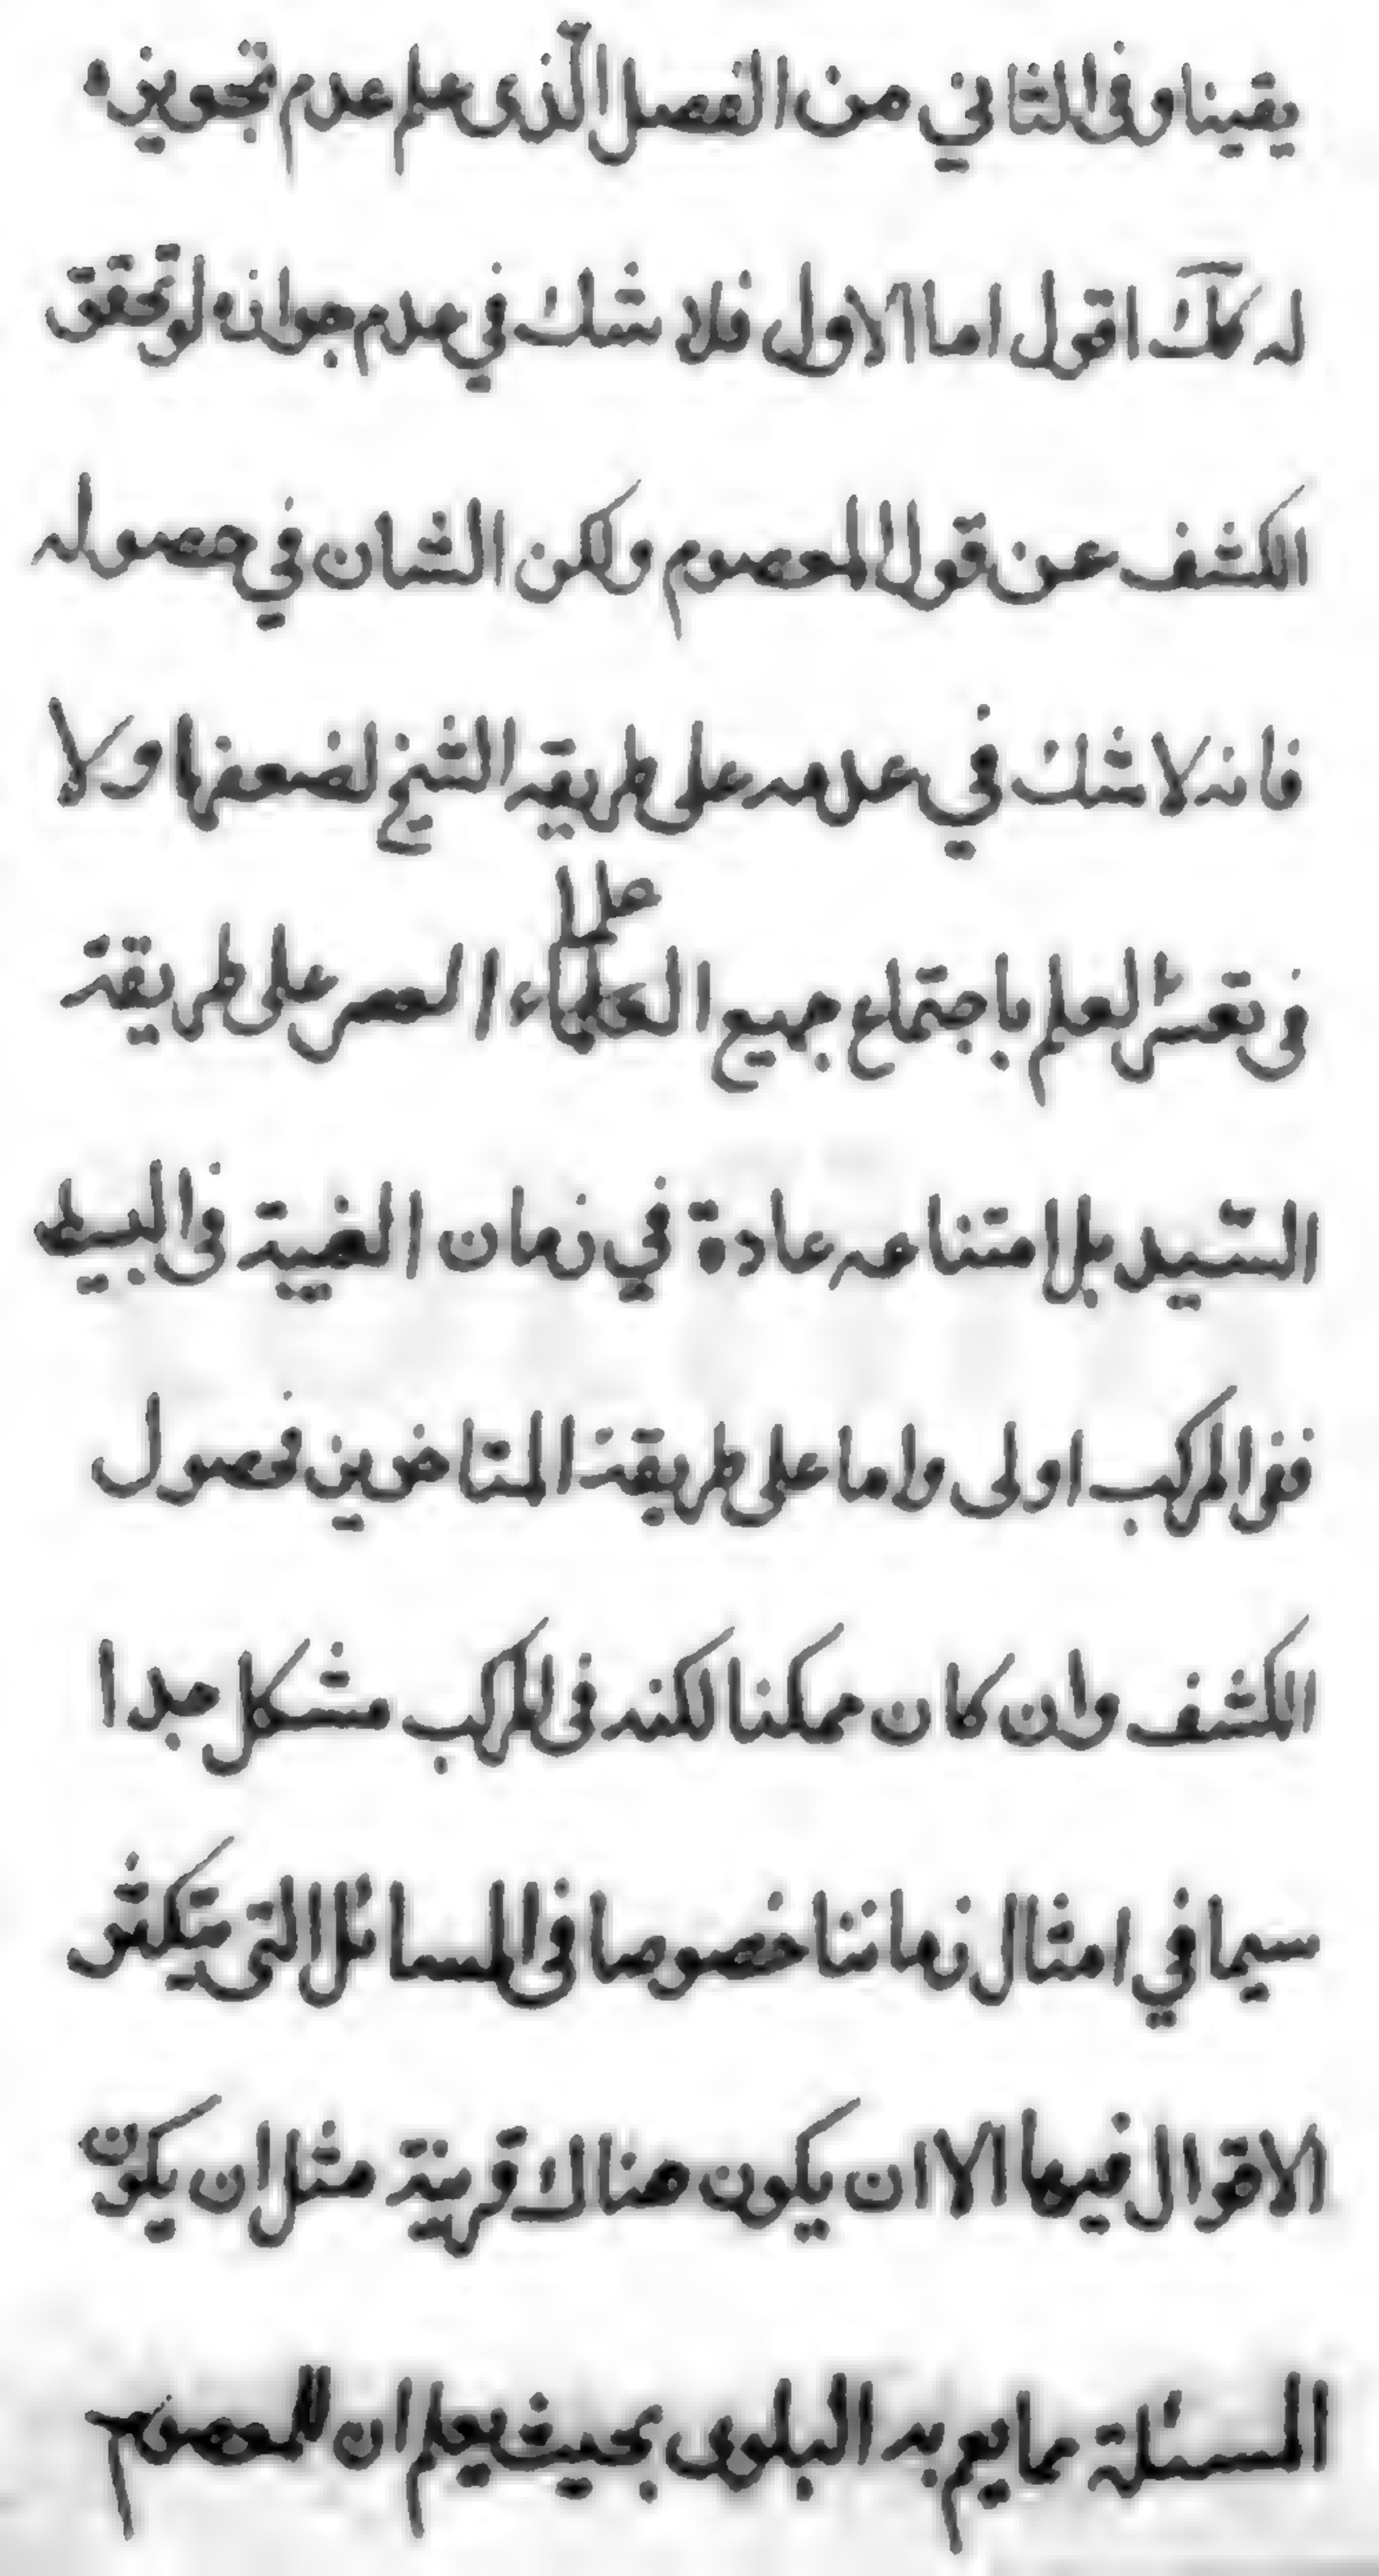 يقينا وفى الثاني من الفصل الّذى علم عدم تجويزه
له كك اقول اما الاول فلا شك في عدم جوازه لو تحقق
الكشف عن قول المعصوم ولكن الشان في حصوله
فانه لا شك في عدمه على طريقه الشيخ لضعفها ولا
فى تعسر العلم باجتماع جميع العلماء العصر على طريقة
علما
السّيد بل امتناعه عادة في زمان الغيبة فى البسيط
ففى المركب اولى واما على طريقة المتاخرين فحصول
الكشف وان كان ممكنا لكنه فى المركب مشكل جدا
سيما في امثال زماننا خصوصا فى المسائل التى يتكثر
الاقوال فيها الا ان يكون هناك قرينة مثل ان يكون
المسئلة مما يعم به البلوى بحيث يعلم ان المعصوم